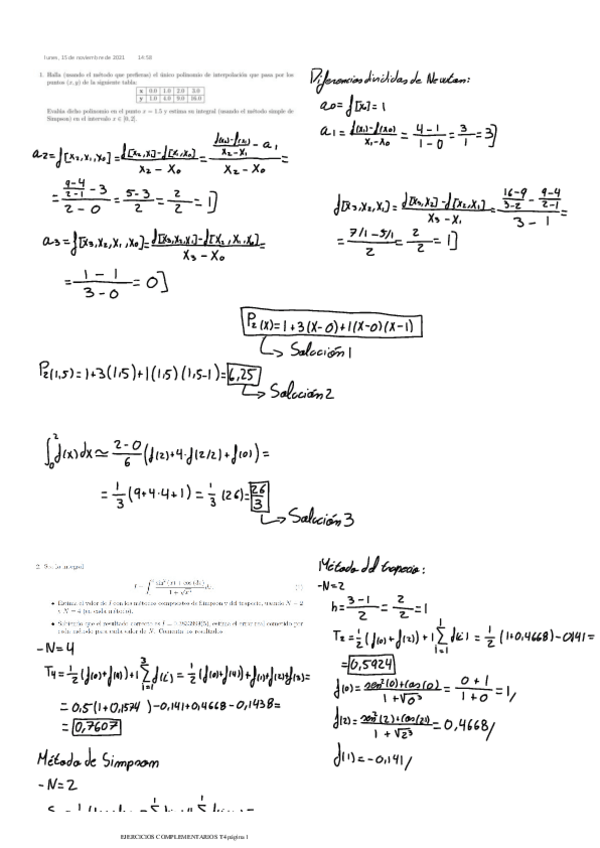 lunes, 15 de noviembre de 2021 14:58
1. Halla (usando el método que prefieras) el único polinomio de interpolación que pasa por los
puntos (x, y) de la siguiente tabla:
x 0.0 1.0 2.0 3.0
y 1.0 4.0 9.0 16.0
Evalúa dicho polinomio en el punto x = 1.5 y estima su integral (usando el método simple de
Simpson) en el intervalo x ∈ [0, 2].
Diferencias divididas de Newton:
a0 = f[x0] = 1
a1 = (f(x1)-f(x0))/(x1-x0) = (4-1)/(1-0) = 3/1 = 3]
a2 = f[x2,x1,x0] = (f[x2,x1]-f[x1,x0])/(x2-x0) = ((f(x2)-f(x1))/(x2-x1) - a1)/(x2-x0) =
= ((9-4)/(2-1) - 3)/(2-0) = (5-3)/2 = 2/2 = 1]
f[x3,x2,x1] = (f[x3,x2]-f[x2,x1])/(x3-x1) = ((16-9)/(3-2) - (9-4)/(2-1))/(3-1) =
= (7/1-5/1)/2 = 2/2 = 1]
a3 = f[x3,x2,x1,x0] = (f[x3,x2,x1]-f[x2,x1,x0])/(x3-x0) =
= (1-1)/(3-0) = 0]
P2(x) = 1+3(x-0)+1(x-0)(x-1)
Solución 1
P2(1,5) = 1+3(1,5)+1(1,5)(1,5-1) = 6,25
Solución 2
∫₀² f(x)dx ≃ (2-0)/6 (f(2)+4·f(2/2)+f(0)) =
= 1/3 (9+4·4+1) = 1/3 (26) = 26/3
Solución 3
2. Sea la integral
Estima el valor de I con los métodos compuestos de Simpson y del trapecio, usando N = 2
y N = 4 (en cada método).
Sabiendo que el resultado correcto es I = estima el error real cometido por
cada método para cada valor de N. Comenta los resultados.
Método del trapecio:
-N=2
h = (3-1)/2 = 2/2 = 1
T2 = 1/2 (f(0)+f(2))+1 Σ f(i) = 1/2 (1+0,4668)-0,141=
= 0,5924
f(0) = (sen²(0)+cos(0))/(1+√0³) = (0+1)/(1+0) = 1/
f(2) = (sen²(2)+cos(2))/(1+√2³) = 0,4668/
f(1) = -0,141/
-N=4
T4 = 1/2 (f(0)+f(4))+1 Σ f(i) = 1/2 (f(0)+f(4))+f(1)+f(2)+f(3)=
= 0,5(1+0,1574)-0,141+0,4668-0,1438=
= 0,7607
Método de Simpson
-N=2
EJERCICIOS COMPLEMENTARIOS T4 página 1